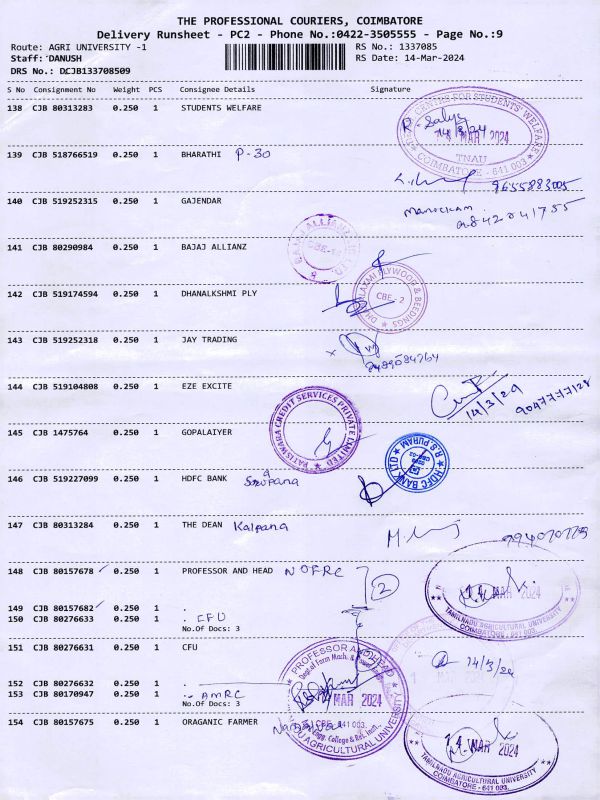 THE PROFESSIONAL COURIERS, COIMBATORE
Delivery Runsheet - PC2 - Phone No.:0422-3505555 - Page No.:9
Route: AGRI UNIVERSITY -1
RS No.: 1337085
Staff: DANUSH
RS Date: 14-Mar-2024
DRS No.: DCJB133708509
S No Consignment No Weight PCS Consignee Details Signature
138 CJB 80313283 0.250 1 STUDENTS WELFARE
CENTRE FOR STUDENTS' WELFARE
14/3/24
MAR 2024
TNAU
COIMBATORE - 641 003
139 CJB 518766519 0.250 1 BHARATHI P-30
9655883005
140 CJB 519252315 0.250 1 GAJENDAR
Manickam
9842041755
141 CJB 80290984 0.250 1 BAJAJ ALLIANZ
142 CJB 519174594 0.250 1 DHANALKSHMI PLY
PLYWOOD & BEEDINGS
CBE - 2
143 CJB 519252318 0.250 1 JAY TRADING
144 CJB 519104808 0.250 1 EZE EXCITE
14/3/24
RATISWARA CREDIT SERVICES PRIVATE LIMITED
145 CJB 1475764 0.250 1 GOPALAIYER
HDFC BANK LTD
R.S PURAM
146 CJB 519227099 0.250 1 HDFC BANK
147 CJB 80313284 0.250 1 THE DEAN Kalpana
148 CJB 80157678 0.250 1 PROFESSOR AND HEAD NOFRC
2
14 MAR 2024
TAMILNADU AGRICULTURAL UNIVERSITY
COIMBATORE - 641 003.
149 CJB 80157682 0.250 1 .
150 CJB 80276633 0.250 1 . CFU
No.Of Docs: 3
151 CJB 80276631 0.250 1 CFU
14/3/24
PROFESSOR AND HEAD
Dept of Farm Mach. &
152 CJB 80276632 0.250 1 .
153 CJB 80170947 0.250 1 . AMRC
No.Of Docs: 3
MAR 2024
154 CJB 80157675 0.250 1 ORAGANIC FARMER
CBE - 641 003.
Engg. College & Res. Inst.
AGRICULTURAL UNIVERSITY
14 MAR 2024
TAMILNADU AGRICULTURAL UNIVERSITY
COIMBATORE - 641 003.